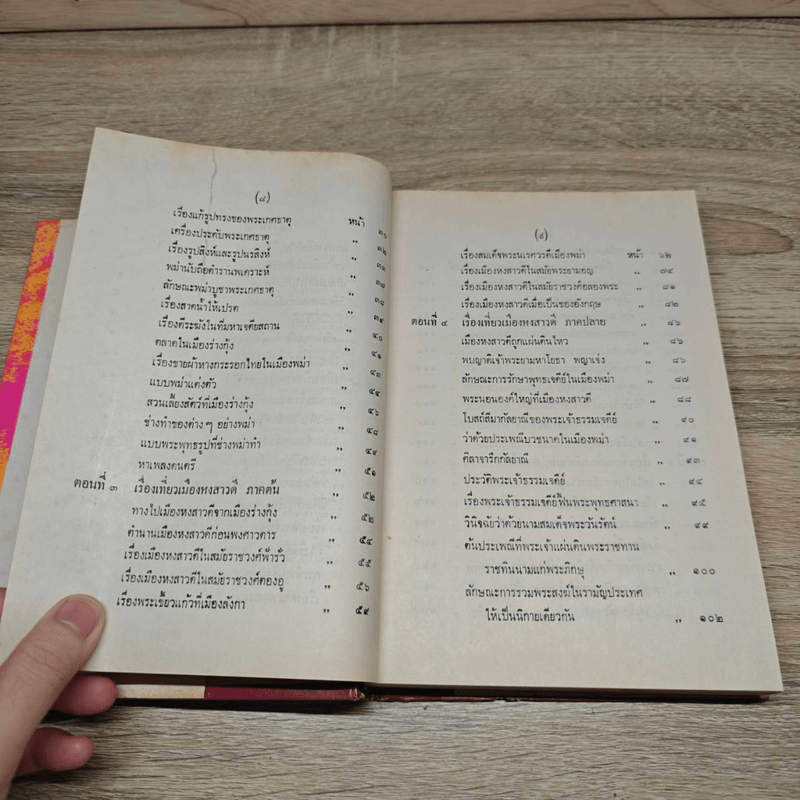 (๘)
เรื่องแก้รูปทรงของพระเกศธาตุ หน้า ๓๐
เครื่องประดับพระเกศธาตุ ,, ๓๒
เรื่องรูปสิงห์และรูปนรสิงห์ ,, ๓๓
พม่านับถือตำรานพเคราะห์ ,, ๓๘
ลักษณะพม่าบูชาพระเกศธาตุ ,, ๓๘
เรื่องสาดน้ำให้เปรต ,, ๓๙
เรื่องตีระฆังในที่มหาเจดียสถาน ,, ๔๐
ตลาดในเมืองร่างกุ้ง ,, ๔๑
เรื่องขายผ้าหางกระรอกไทยในเมืองพม่า ,, ๔๓
แบบพม่าแต่งตัว ,, ๔๔
สวนเลี้ยงสัตว์ที่เมืองร่างกุ้ง ,, ๔๖
ช่างทำของต่าง ๆ อย่างพม่า ,, ๔๘
แบบพระพุทธรูปที่ช่างพม่าทำ ,, ๔๙
หาเพลงดนตรี ,, ๕๑
ตอนที่ ๓ เรื่องเที่ยวเมืองหงสาวดี ภาคต้น ,, ๕๒
ทางไปเมืองหงสาวดีจากเมืองร่างกุ้ง ,, ๕๒
ตำนานเมืองหงสาวดีก่อนพงศาวดาร ,, ๕๔
เรื่องเมืองหงสาวดีในสมัยราชวงศ์ฟ้ารั่ว ,, ๕๕
เรื่องเมืองหงสาวดีในสมัยราชวงศ์ตองอู ,, ๕๖
เรื่องพระเขี้ยวแก้วที่เมืองลังกา ,, ๕๙
(๙)
เรื่องสมเด็จพระนเรศวรตีเมืองพม่า หน้า ๖๒
เรื่องเมืองหงสาวดีในสมัยพระยามอญ ,, ๗๔
เรื่องเมืองหงสาวดีในสมัยราชวงศ์อลองพระ ,, ๘๑
เรื่องเมืองหงสาวดีเมื่อเป็นของอังกฤษ ,, ๘๒
ตอนที่ ๔ เรื่องเที่ยวเมืองหงสาวดี ภาคปลาย ,, ๘๖
เมืองหงสาวดีถูกแผ่นดินไหว ,, ๘๖
พบญาติเจ้าพระยามหาโยธา พญาเจ่ง ,, ๘๖
ลักษณะการรักษาพุทธเจดีย์ในเมืองพม่า ,, ๘๗
พระนอนองค์ใหญ่ที่เมืองหงสาวดี ,, ๘๘
โบสถ์สีมากัลยาณีของพระเจ้าธรรมเจดีย์ ,, ๙๐
ว่าด้วยประเพณีบวชนาคในเมืองพม่า ,, ๙๑
ศิลาจารึกกัลยาณี ,, ๙๓
ประวัติพระเจ้าธรรมเจดีย์ ,, ๙๔
เรื่องพระเจ้าธรรมเจดีย์ฟื้นพระพุทธศาสนา ,, ๙๕
วินิจฉัยว่าด้วยนามสมเด็จพระวันรัตน์ ,, ๙๙
ต้นประเพณีที่พระเจ้าแผ่นดินพระราชทาน
ราชทินนามแก่พระภิกษุ ,, ๑๐๐
ลักษณะการรวมพระสงฆ์ในรามัญประเทศ
ให้เป็นนิกายเดียวกัน ,, ๑๐๒